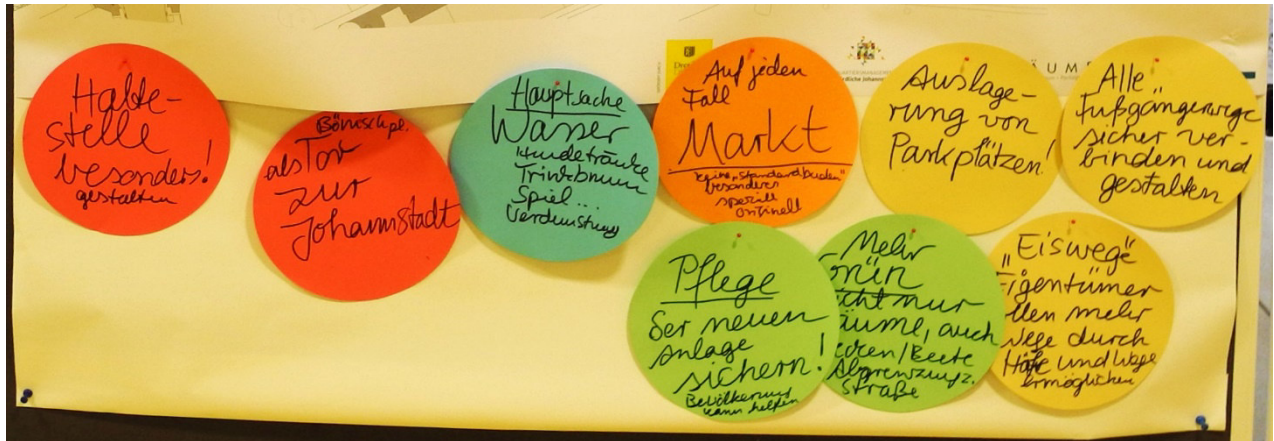 Halte-
stelle
besonders!
gestalten
Bönischpl.
als Tor
zur
Johannstadt
Hauptsache
Wasser
Hundetränke
Trinkbrunn
Spiel...
Verdunstung
Auf jeden
Fall
Markt
keine "Standardbuden"
besonderes
speziell
originell
Auslage-
rung von
Parkplätzen!
Alle
Fußgängerwege
sicher ver-
binden und
gestalten
Pflege
der neuen
Anlage
sichern!
Bevölkerung
kann helfen
Mehr
Grün
icht nur
äume, auch
ecken/Beete
Abgrenzung z.
Straße
"Eiswege"
Eigentümer
llen mehr
Wege durch
Höfe und Wege
ermöglichen
ÄUME